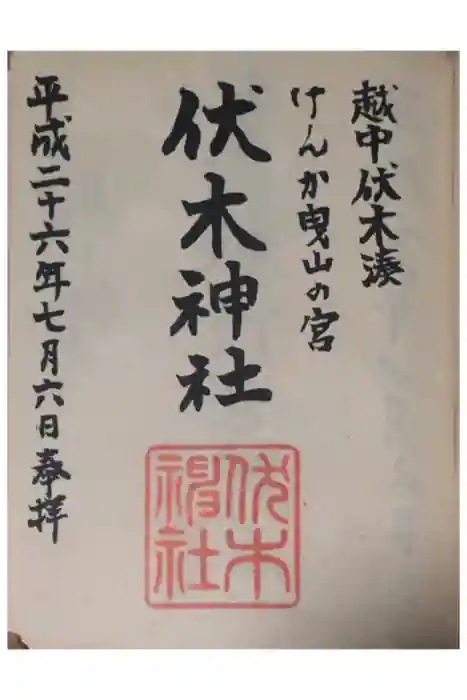 越中伏木湊
けんか曳山の宮
伏木神社
平成二十六年七月六日奉拝
伏木
神社